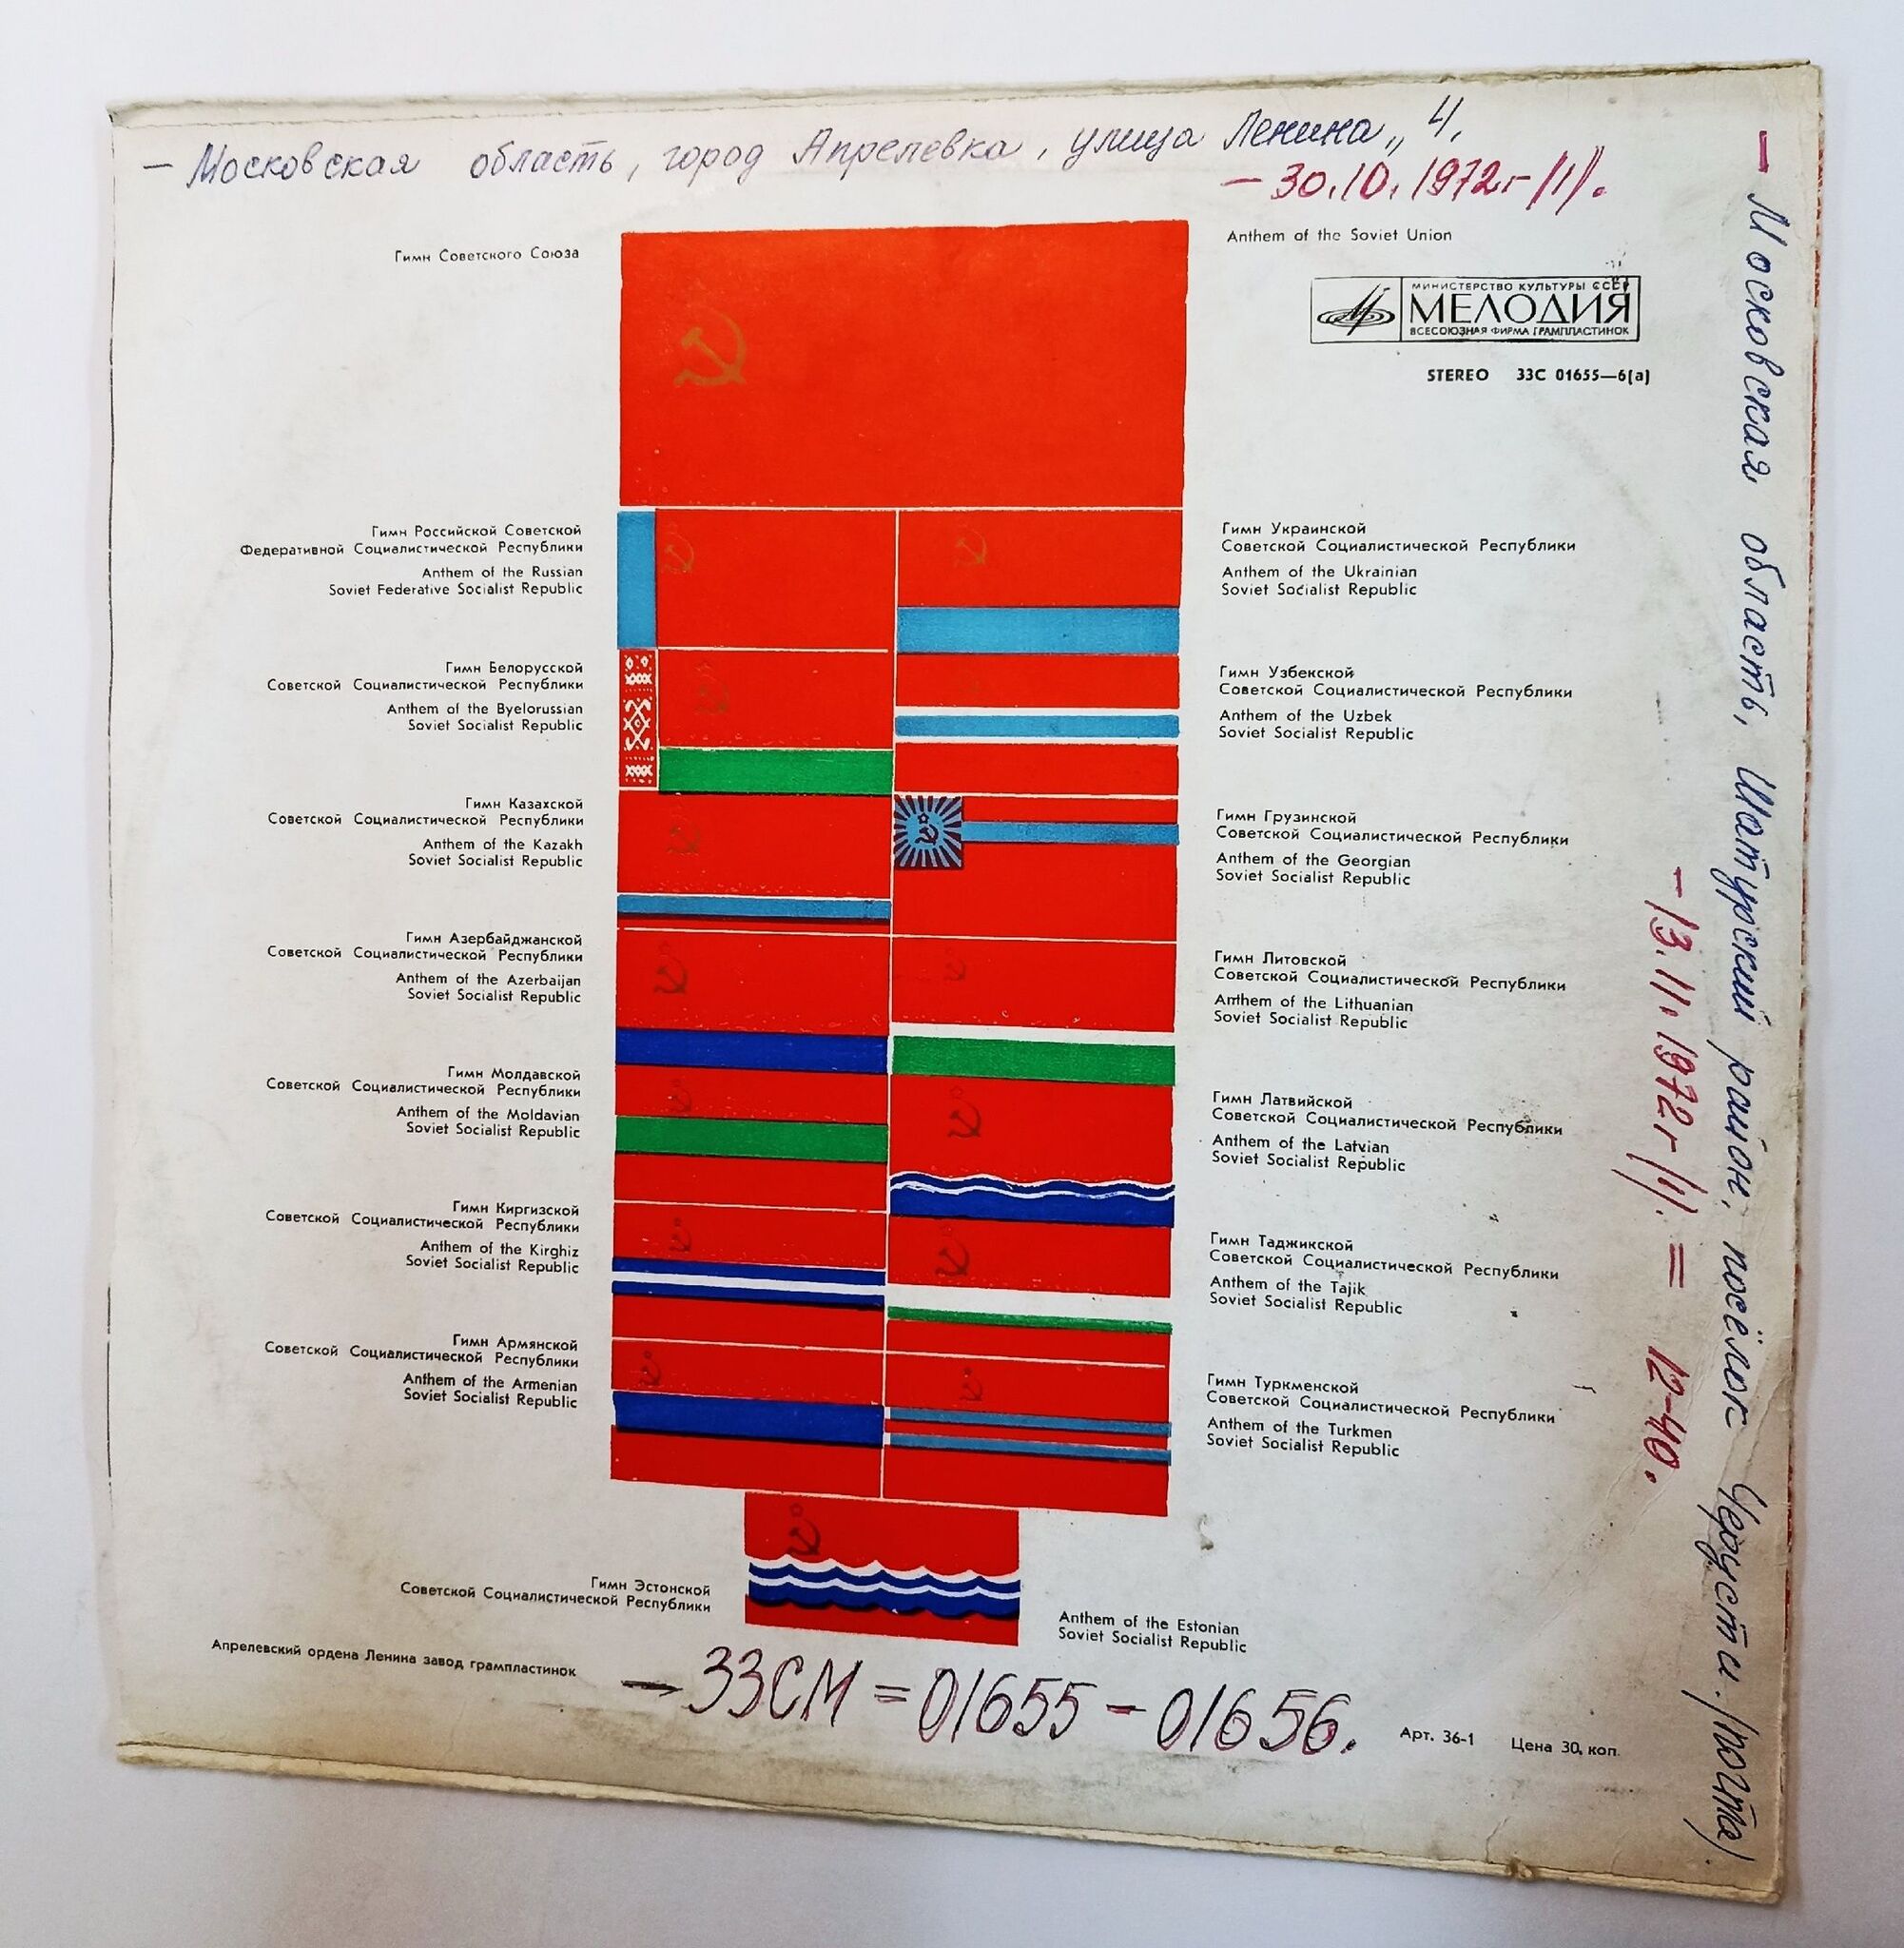 — Московская область, город Апрелевка, улица Ленина,, 4.
— 30.10.1972г /1/.
Гимн Советского Союза
Anthem of the Soviet Union
МИНИСТЕРСТВО КУЛЬТУРЫ СССР
МЕЛОДИЯ
ВСЕСОЮЗНАЯ ФИРМА ГРАМПЛАСТИНОК
STEREO 33С 01655—6(а)
Гимн Российской Советской
Федеративной Социалистической Республики
Anthem of the Russian
Soviet Federative Socialist Republic
Гимн Украинской
Советской Социалистической Республики
Anthem of the Ukrainian
Soviet Socialist Republic
Гимн Белорусской
Советской Социалистической Республики
Anthem of the Byelorussian
Soviet Socialist Republic
Гимн Узбекской
Советской Социалистической Республики
Anthem of the Uzbek
Soviet Socialist Republic
Гимн Казахской
Советской Социалистической Республики
Anthem of the Kazakh
Soviet Socialist Republic
Гимн Грузинской
Советской Социалистической Республики
Anthem of the Georgian
Soviet Socialist Republic
Гимн Азербайджанской
Советской Социалистической Республики
Anthem of the Azerbaijan
Soviet Socialist Republic
Гимн Литовской
Советской Социалистической Республики
Anthem of the Lithuanian
Soviet Socialist Republic
Гимн Молдавской
Советской Социалистической Республики
Anthem of the Moldavian
Soviet Socialist Republic
Гимн Латвийской
Советской Социалистической Республики
Anthem of the Latvian
Soviet Socialist Republic
Гимн Киргизской
Советской Социалистической Республики
Anthem of the Kirghiz
Soviet Socialist Republic
Гимн Таджикской
Советской Социалистической Республики
Anthem of the Tajik
Soviet Socialist Republic
Гимн Армянской
Советской Социалистической Республики
Anthem of the Armenian
Soviet Socialist Republic
Гимн Туркменской
Советской Социалистической Республики
Anthem of the Turkmen
Soviet Socialist Republic
Гимн Эстонской
Советской Социалистической Республики
Anthem of the Estonian
Soviet Socialist Republic
Апрелевский ордена Ленина завод грампластинок
— 33СМ = 01655 - 01656.
Арт. 36-1 Цена 30 коп.
— Московская область, Шатурский район, посёлок Черусти. /почта/.
— 13.11.1972г /1/. = 12-40.